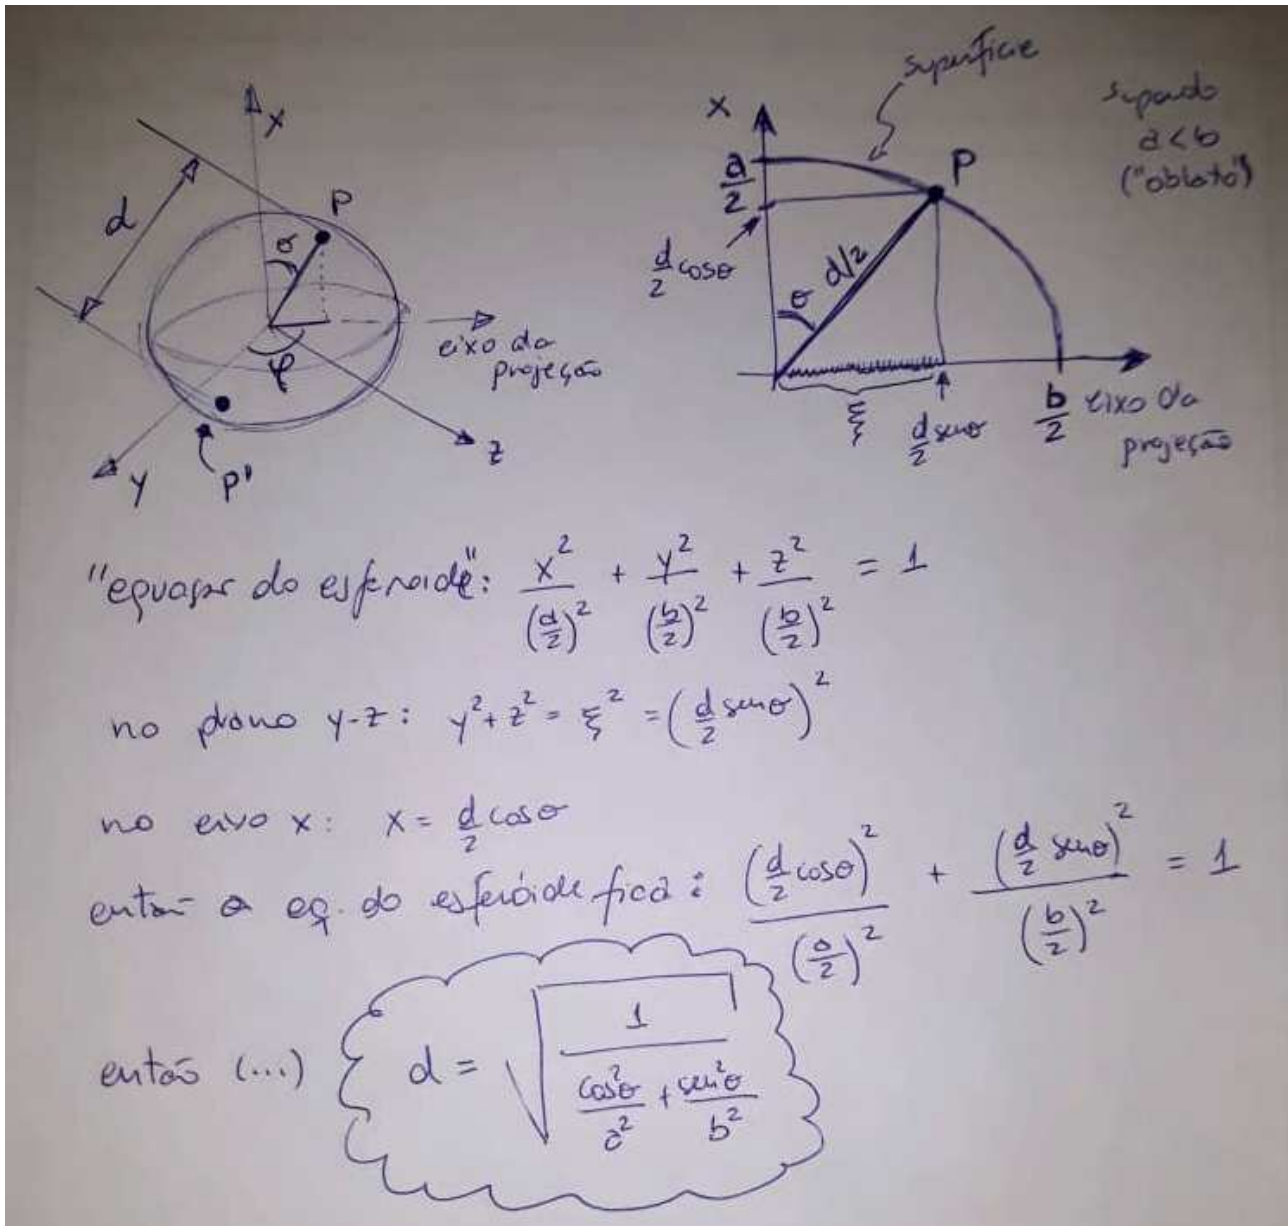 x
d
P
θ
φ
eixo da
projeção
z
y
P'
superfície
supondo
a<b
("oblato")
x
a/2
P
d/2 cosθ
d/2
θ
ξ
d/2 senθ
b/2
eixo da
projeção
"equação do esferoide": x²/(a/2)² + y²/(b/2)² + z²/(b/2)² = 1
no plano y-z: y²+z² = ξ² = (d/2 senθ)²
no eixo x: x = d/2 cosθ
então a eq. do esferóide fica: (d/2 cosθ)²/(a/2)² + (d/2 senθ)²/(b/2)² = 1
então (...) d = √(1/(cos²θ/a² + sen²θ/b²))